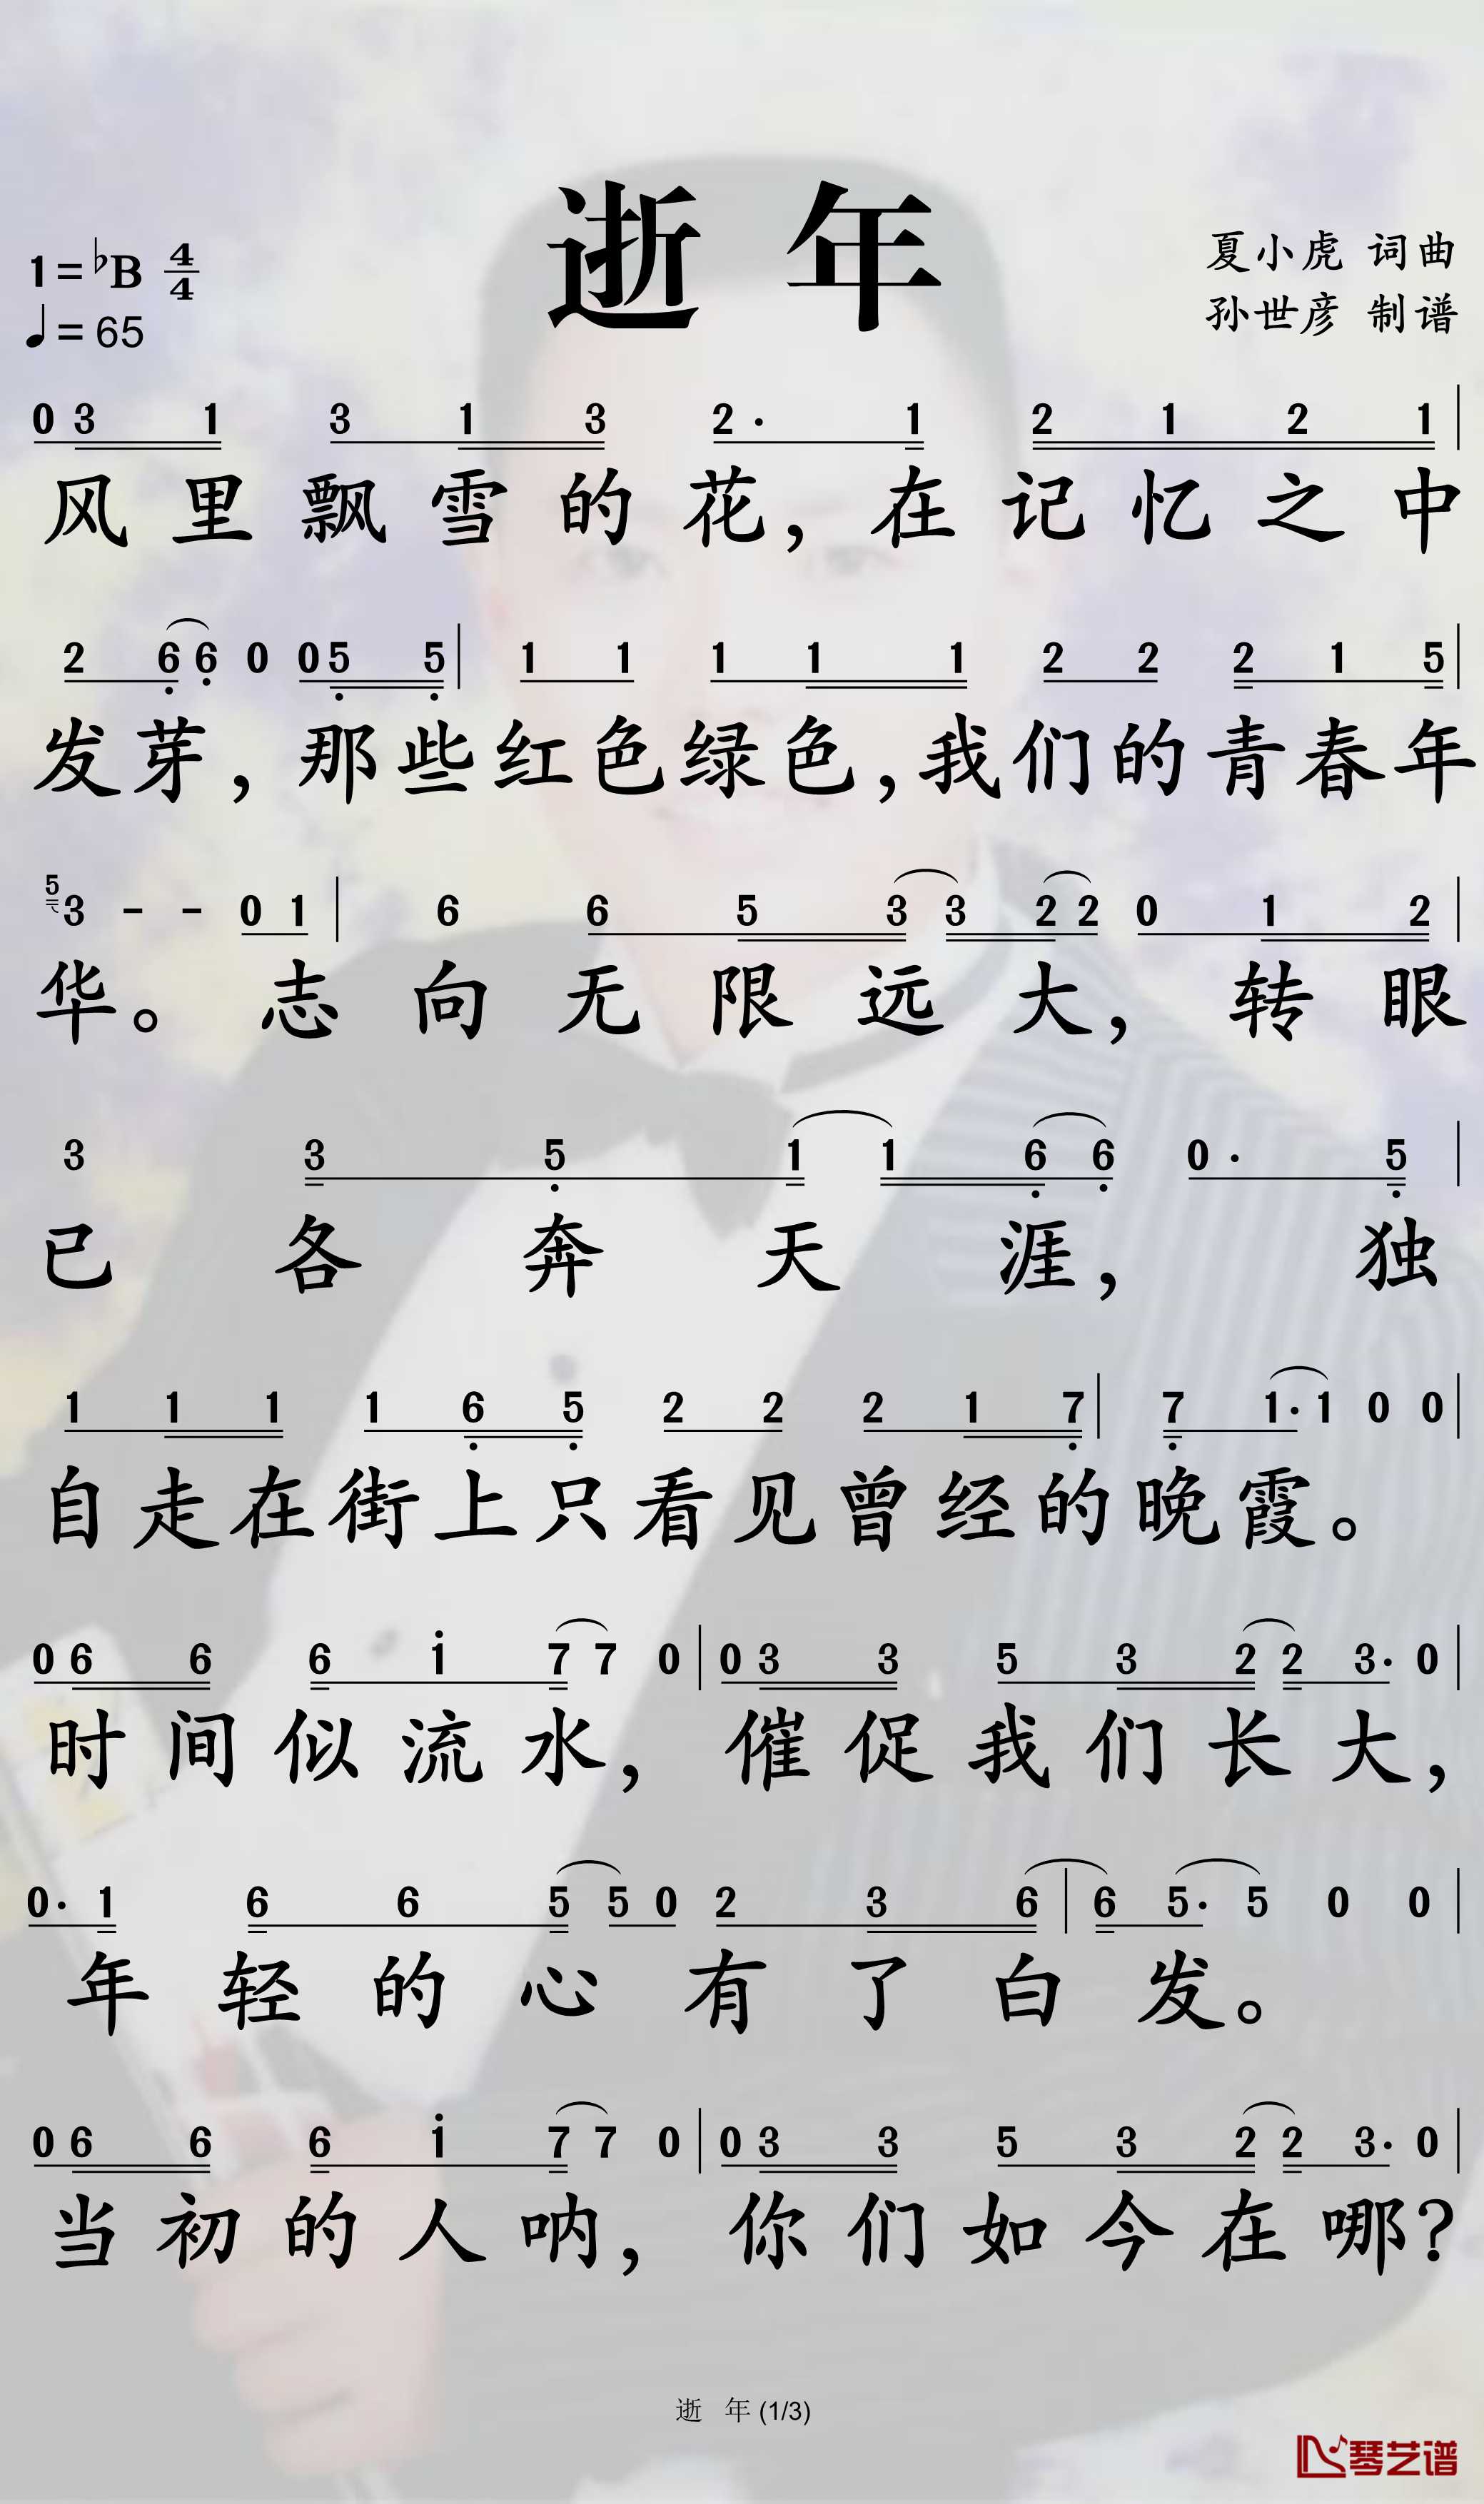 逝 年
1=♭B 4/4
♩=65
夏小虎 词曲
孙世彦 制谱
0 3 1 3 1 3 2· 1 2 1 2 1 |
风里飘雪的花，在记忆之中
2 6̣ 6̣ 0 0 5̣ 5̣ | 1 1 1 1 1 2 2 2 1 5 |
发芽，那些红色绿色，我们的青春年
5 3 - - 0 1 | 6 6 5 3 3 2 2 0 1 2 |
华。志向无限远大，转眼
3 3 5̣ 1 1 6̣ 6̣ 0· 5̣ |
已各奔天涯，独
1 1 1 1 6̣ 5̣ 2 2 2 1 7̣ | 7̣ 1· 1 0 0 |
自走在街上只看见曾经的晚霞。
0 6 6 6 1̇ 7 7 0 | 0 3 3 5 3 2 2 3· 0 |
时间似流水，催促我们长大，
0· 1 6 6 5 5 0 2 3 6 | 6 5· 5 0 0 |
年轻的心有了白发。
0 6 6 6 1̇ 7 7 0 | 0 3 3 5 3 2 2 3· 0 |
当初的人呐，你们如今在哪？
逝 年 (1/3)
琴艺谱